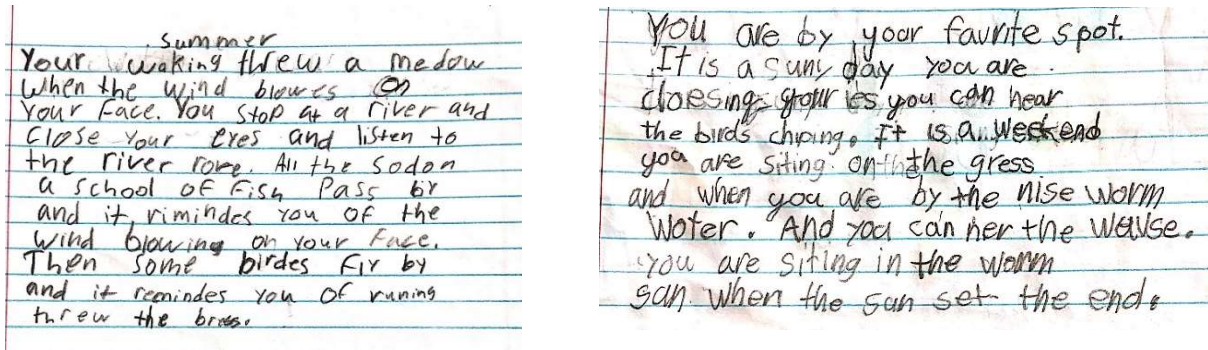 summer
Your waking threw a medow
when the wind blowes on
your Face. You stop at a river and
close your eyes and listen to
the river rore. All the sodon
a school of Fish Pass by
and it rimindes you of the
wind blowing on your Face.
Then some birdes Fly by
and it remindes you of runing
threw the
You are by your faurite spot.
It is a suny day you are
cloesing your ies you can hear
the birds chiping. It is a weekend
you are siting on the gress
and when you are by the nise worm
woter. And you can her the wavse.
you are siting in the worm
san when the sun set the end.